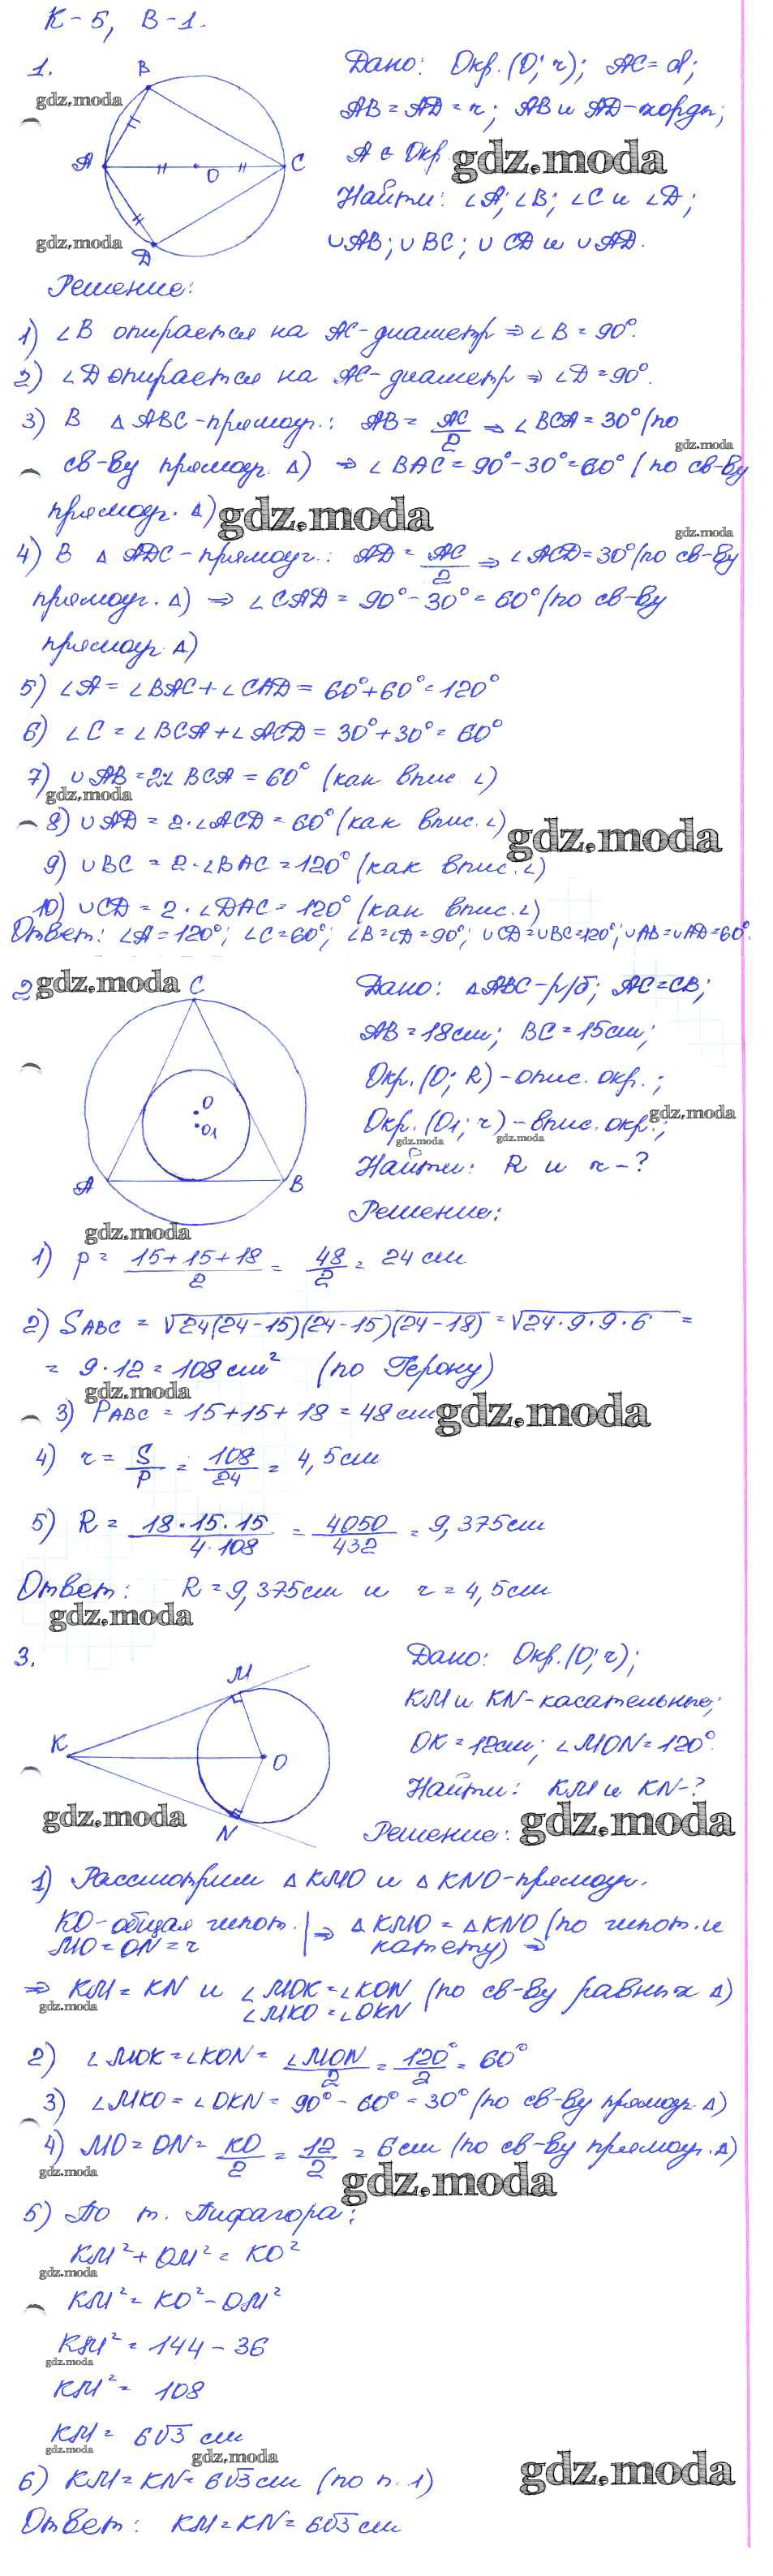 К-5, В-1.
1.
B
A
O
C
D
gdz.moda
Дано: Окр.(O; r); AC=d;
AB=AD=r; AB и AD-хорды;
A ∈ Окр
gdz.moda
Найти: ∠A; ∠B; ∠C и ∠D;
gdz.moda
∪AB; ∪BC; ∪CD и ∪AD.
Решение:
1) ∠B опирается на AC-диаметр ⇒ ∠B = 90°.
2) ∠D опирается на AC-диаметр ⇒ ∠D = 90°.
3) В △ABC-прямоуг.: AB = AC/2 ⇒ ∠BCA = 30° (по
gdz.moda
св-ву прямоуг. △) ⇒ ∠BAC = 90°-30°=60° (по св-ву
прямоуг. △)
gdz.moda
gdz.moda
4) В △ADC-прямоуг.: AD = AC/2 ⇒ ∠ACD=30° (по св-ву
прямоуг. △) ⇒ ∠CAD = 90°-30° = 60° (по св-ву
прямоуг. △)
5) ∠A = ∠BAC+∠CAD = 60°+60°=120°
6) ∠C = ∠BCA+∠ACD = 30°+30°= 60°
7) ∪AB=2·∠BCA = 60° (как впис ∠)
gdz.moda
8) ∪AD = 2·∠ACD = 60° (как впис.∠)
gdz.moda
9) ∪BC = 2·∠BAC = 120° (как впис.∠)
10) ∪CD = 2·∠DAC = 120° (как впис.∠)
Ответ: ∠A=120°; ∠C=60°; ∠B=∠D=90°; ∪CD=∪BC=120°; ∪AB=∪AD=60°.
2
gdz.moda
C
O
O1
A
B
Дано: △ABC-р/б; AC=CB;
AB=18см; BC=15см;
Окр.(O; R)-опис. окр.;
gdz.moda
Окр.(O1; r)-впис. окр.;
gdz.moda
gdz.moda
Найти: R и r-?
Решение:
gdz.moda
1) p = 15+15+18/2 = 48/2 = 24 см
2) SABC = √24(24-15)(24-15)(24-18) = √24·9·9·6 =
= 9·12 = 108 см² (по Герону)
gdz.moda
3) PABC = 15+15+18 = 48 см
gdz.moda
4) r = S/p = 108/24 = 4,5см
5) R = 18·15·15/4·108 = 4050/432 = 9,375см
Ответ: R=9,375см и r=4,5см
gdz.moda
3.
M
K
O
N
gdz.moda
Дано: Окр.(O; r);
KM и KN-касательные;
OK=12см; ∠MON=120°.
Найти: KM и KN-?
Решение:
gdz.moda
1) Рассмотрим △KMO и △KNO-прямоуг.
KO-общая гипот. | ⇒ △KMO = △KNO (по гипот. и
MO=ON=r катету) ⇒
⇒ KM=KN и ∠MOK=∠KON (по св-ву равных △)
gdz.moda
∠MKO=∠OKN
2) ∠MOK=∠KON = ∠MON/2 = 120°/2 = 60°
3) ∠MKO = ∠OKN = 90°-60° = 30° (по св-ву прямоуг. △)
4) MO = ON = KO/2 = 12/2 = 6см (по св-ву прямоуг. △)
gdz.moda
gdz.moda
5) По т. Пифагора:
KM²+OM²=KO²
gdz.moda
KM²=KO²-OM²
KM²=144-36
gdz.moda
KM²= 108
KM= 6√3 см
gdz.moda
gdz.moda
6) KM=KN=6√3см (по п.1)
gdz.moda
Ответ: KM=KN=6√3см